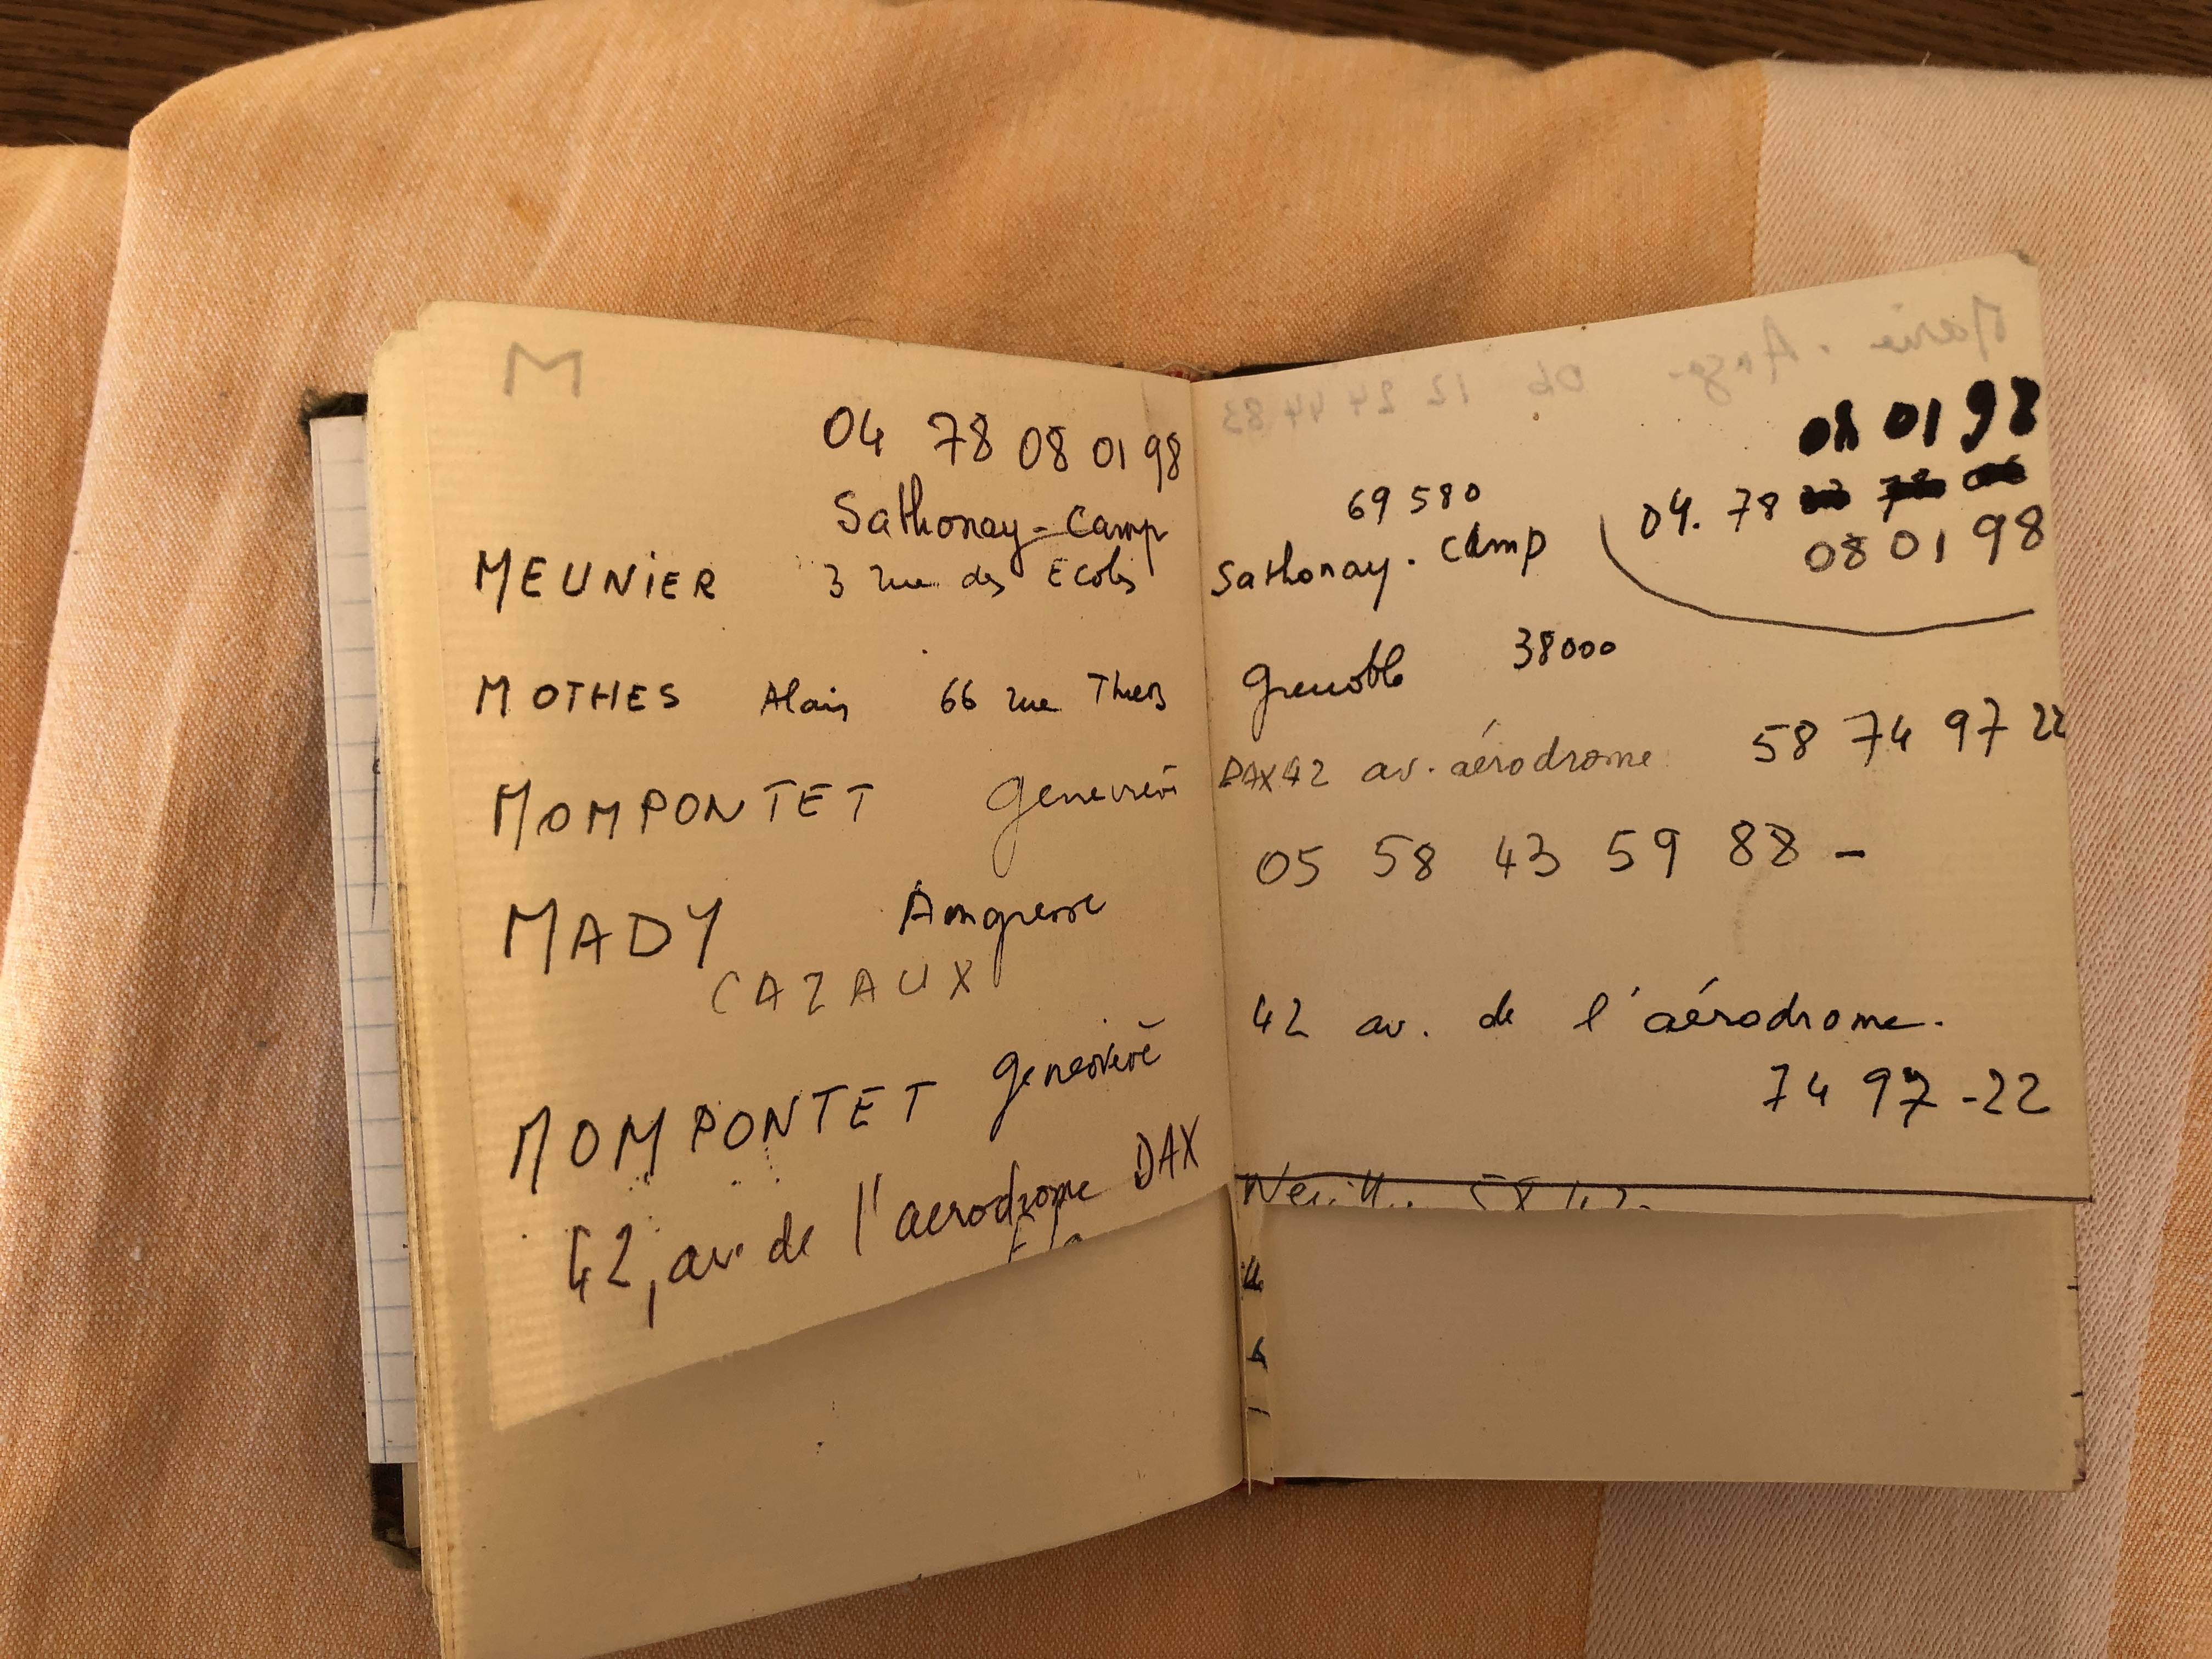 M
04 78 08 01 98
Sathonay-Camp
MEUNIER 3 rue des Ecoles
MOTHES Alain 66 rue Thiers
MOMPONTET Geneviève
MADY Angresse
CAZAUX
MOMPONTET Geneviève
42, av. de l'aerodrome DAX
Marie-Ange 06 12 24 44 83
08 01 98
69580
04. 78
Sathonay-Camp
08 01 98
Grenoble 38000
DAX 42 av. aérodrome 58 74 97 22
05 58 43 59 88 -
42 av. de l'aérodrome.
74 97 -22